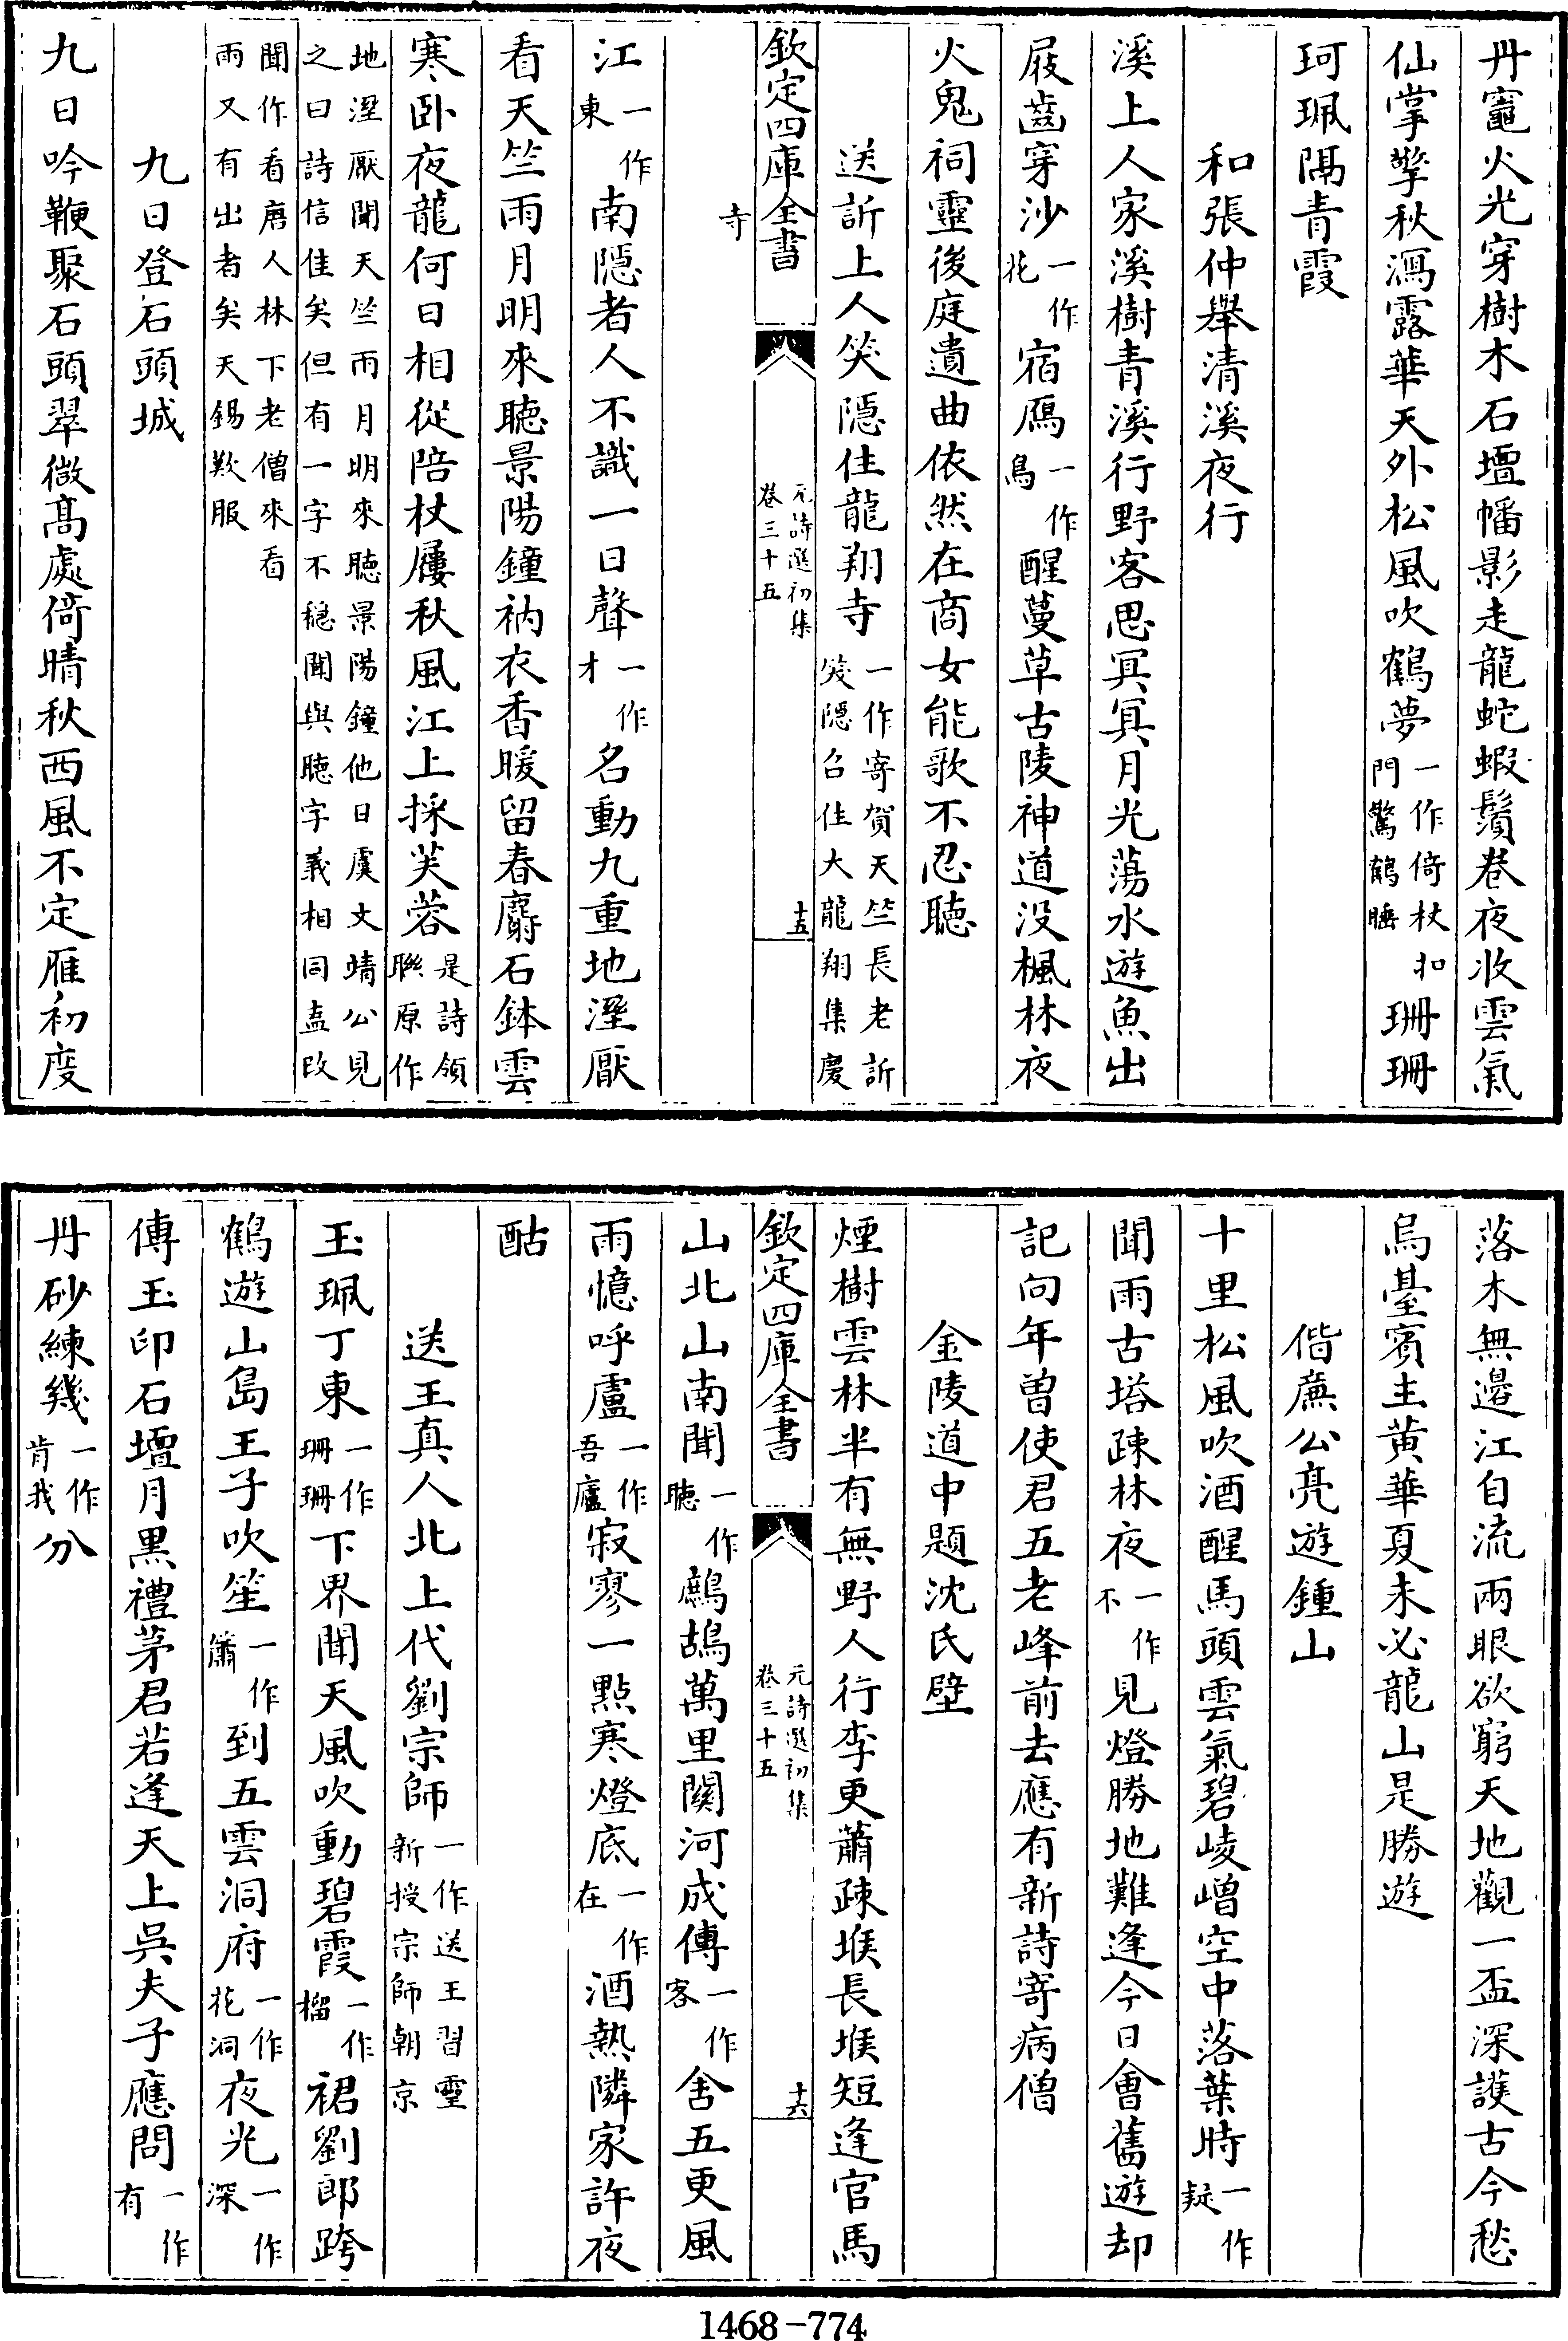 丹竈火光穿樹木石壇幡影走龍蛇蝦鬚巻夜收雲氣
仙掌擎秋瀉露華天外松風吹鶴夢一作倚杖扣門驚鶴睡珊珊
珂珮隔青霞
和張仲舉清溪夜行
溪上人家溪樹青溪行野客思冥冥月光蕩水遊魚出
屐齒穿沙一作花宿鴈一作鳥醒蔓草古陵神道没楓林夜
火鬼祠靈後庭遺曲依然在商女能歌不忍聽
送訢上人笑隱住龍翔寺一作寄賀天竺長老訢笑隱召住大龍翔集慶
欽定四庫全書
元詩選初集
卷三十五
十五
寺
江一作東南隱者人不識一日聲一作才名動九重地溼厭
看天竺雨月明來聴景陽鐘衲衣香暖留春麝石鉢雲
寒卧夜龍何日相從陪杖屨秋風江上採芙蓉是詩領聯原作
地溼厭聞天竺雨月明來聴景陽鐘他日虞文靖公見
之曰詩信佳矣但有一字不穏聞與聴字義相同盍改
聞作看唐人林下老僧來看
雨又有出者矣天錫歎服
九日登石頭城
九日吟鞭聚石頭翠微髙處倚晴秋西風不定雁初度
落木無邊江自流兩眼欲窮天地觀一盃深護古今愁
烏臺賓主黄華夏未必龍山是勝遊
偕亷公亮遊鍾山
十里松風吹酒醒馬頭雲氣碧崚嶒空中落葉時一作疑
聞雨古塔疎林夜一作不見燈勝地難逢今日會舊遊却
記向年曽使君五老峰前去應有新詩寄病僧
金陵道中題沈氏壁
煙樹雲林半有無野人行李更蕭疎堠長堠短逢官馬
欽定四庫全書
元詩選初集
卷三十五
十六
山北山南聞一作聴鷓鴣萬里闗河成傳一作客舍五更風
雨憶呼盧一作吾廬寂寥一點寒燈底一作在酒熱隣家許夜
酤
送王真人北上代劉宗師一作送王習靈新授宗師朝京
玉珮丁東一作珊珊下界聞天風吹動碧霞一作榴裙劉郎跨
鶴遊山島王子吹笙一作簫到五雲洞府一作花洞夜光一作深
傳玉印石壇月黒禮茅君若逢天上吳夫子應問一作有
丹砂練幾一作肯我分
1468-774